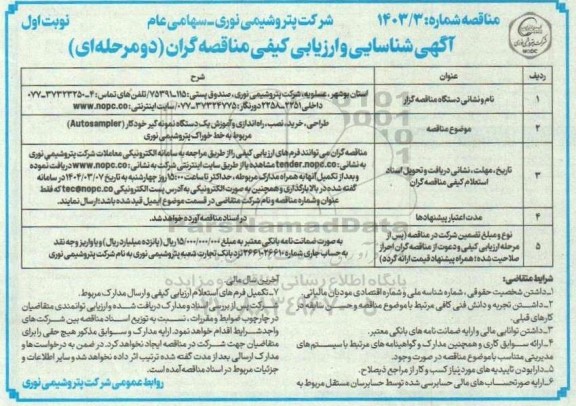 مناقصه شماره: ۱۴۰۳/۳
شرکت پتروشیمی نوری_سهامی عام
نوبت اول
آگهی شناسایی و ارزیابی کیفی مناقصه گران (دو مرحله ای)
NOPC
ردیف
عنوان
شرح
۱
نام و نشانی دستگاه مناقصه گزار
استان بوشهر، عسلویه، شرکت پتروشیمی نوری، صندوق پستی: ۱۱۵-۷۵۳۹۱/ تلفن های تماس: ۴-۳۷۳۲۳۲۵۰-۰۷۷
داخلی ۲۲۵۱-۲۲۵۸ دورنگار: ۳۷۳۲۴۷۷۵-۰۷۷/ سایت اینترنتی: www.nopc.co
۲
موضوع مناقصه
طراحی، خرید، نصب، راه اندازی و آموزش یک دستگاه نمونه گیر خودکار (Autosampler)
مربوط به خط خوراک پتروشیمی نوری
۳
تاریخ، مهلت، نشانی دریافت و تحویل اسناد
استعلام کیفی مناقصه گران
مناقصه گران می توانند فرم های ارزیابی کیفی را از طریق مراجعه به سامانه الکترونیکی معاملات شرکت پتروشیمی نوری
به نشانی: tender.nopc.co مشاهده یا از طریق سایت اینترنتی شرکت به نشانی: www.nopc.co دریافت نموده
و بعد از تکمیل آنها به همراه مدارک مربوطه، حداکثر تا ساعت ۱۵:۰۰ روز چهارشنبه به تاریخ ۱۴۰۴/۰۳/۰۷ در سامانه
گفته شده در بالا بارگذاری و همچنین به صورت الکترونیکی به آدرس پست الکترونیکی tec@nopc.co که فقط
عنوان و شماره مناقصه و نام شرکت متقاضی در قسمت موضوع ایمیل قید شده باشد؛ ارسال نمایند.
۴
مدت اعتبار پیشنهادها
در اسناد مناقصه آورده خواهد شد.
۵
نوع و مبلغ تضمین شرکت در مناقصه (پس از
مرحله ارزیابی کیفی و دعوت از مناقصه گران احراز
صلاحیت شده؛ همراه پیشنهاد قیمت ارائه گردد)
به صورت ضمانت نامه بانکی معتبر به مبلغ ۱۵/۰۰۰/۰۰۰/۰۰۰ ریال (پانزده میلیارد ریال) و یا واریز وجه نقد
به حساب جاری شماره نزد بانک تجارت شعبه پتروشیمی نوری به نام شرکت پتروشیمی نوری
شرایط متقاضی:
۱_داشتن شخصیت حقوقی، شماره شناسه ملی و شماره اقتصادی مودیان مالیاتی
۲_داشتن تجربه و دانش فنی کافی مرتبط با موضوع مناقصه و حسن سابقه در
کارهای قبلی
۳_داشتن توانایی مالی و ارایه ضمانت نامه های بانکی معتبر.
۴_ارائه سوابق کاری و همچنین مدارک و گواهینامه های مرتبط با سیستم های
مدیریتی متناسب با موضوع مناقصه در صورت وجود.
۵_دارا بودن تاییدیه های مورد نیاز کسب و کار از مراجع ذیصلاح.
۶_ارایه صورتحساب های مالی حسابرسی شده توسط حسابرسان مستقل مربوط به
آخرین سال مالی
۷_تکمیل فرم های استعلام ارزیابی کیفی و ارسال مدارک مربوط.
شرکت پس از بررسی اسناد و مدارک دریافت شده و ارزیابی توانمندی متقاضیان
در چارچوب ضوابط و مقررات، نسبت به توزیع اسناد مناقصه بین شرکت های
واجد شرایط اقدام خواهد نمود. ارایه مدارک و سوابق مذکور هیچ حقی را برای
متقاضیان جهت شرکت در مناقصه ایجاد نخواهد کرد. در ضمن به درخواست ها و
مدارک ارسالی بعد از مدت گفته شده ترتیب اثر داده نخواهد شد و سایر اطلاعات و
جزئیات مربوط در اسناد مناقصه آمده است.
روابط عمومی شرکت پتروشیمی نوری